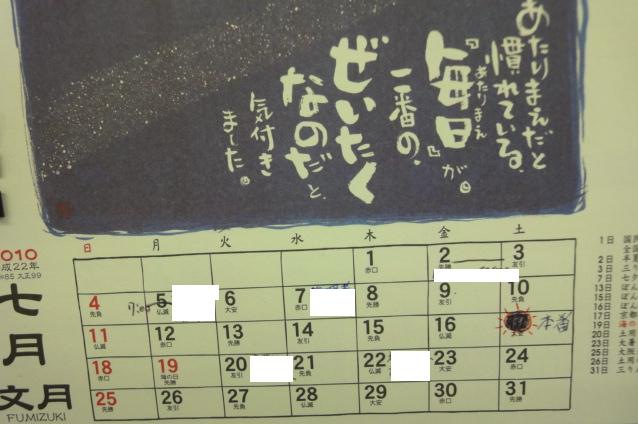 あたりまえだと
慣れている、
『毎日』が。
あたりまえ
一番の、
ぜいたく
なのだと、
気付き
ました。
2010
平成22年
七
月
文月
FUMIZUKI
日 月 火 水 木 金 土
1 2 3
赤口 先勝 友引
4 5 6 7 8 9 10
先負 仏滅 大安 赤口 先勝 友引 先負
7:00
11 12 13 14 15 16 本番
仏滅 赤口 先勝 友引 先負 仏滅
18 19 20 21 22 23 24
赤口 海の日 先勝 友引 先負 仏滅 大安 赤口
25 26 27 28 29 30 31
先勝 友引 先負 仏滅 大安 赤口 先勝
1日 国民
全国
2日 半夏
3日
7日 七夕
13日 ぼん
15日 ぼん
16日 ぼん
17日 京都
19日 海の
20日 土用
23日 大暑
25日 大阪
26日 土用
31日